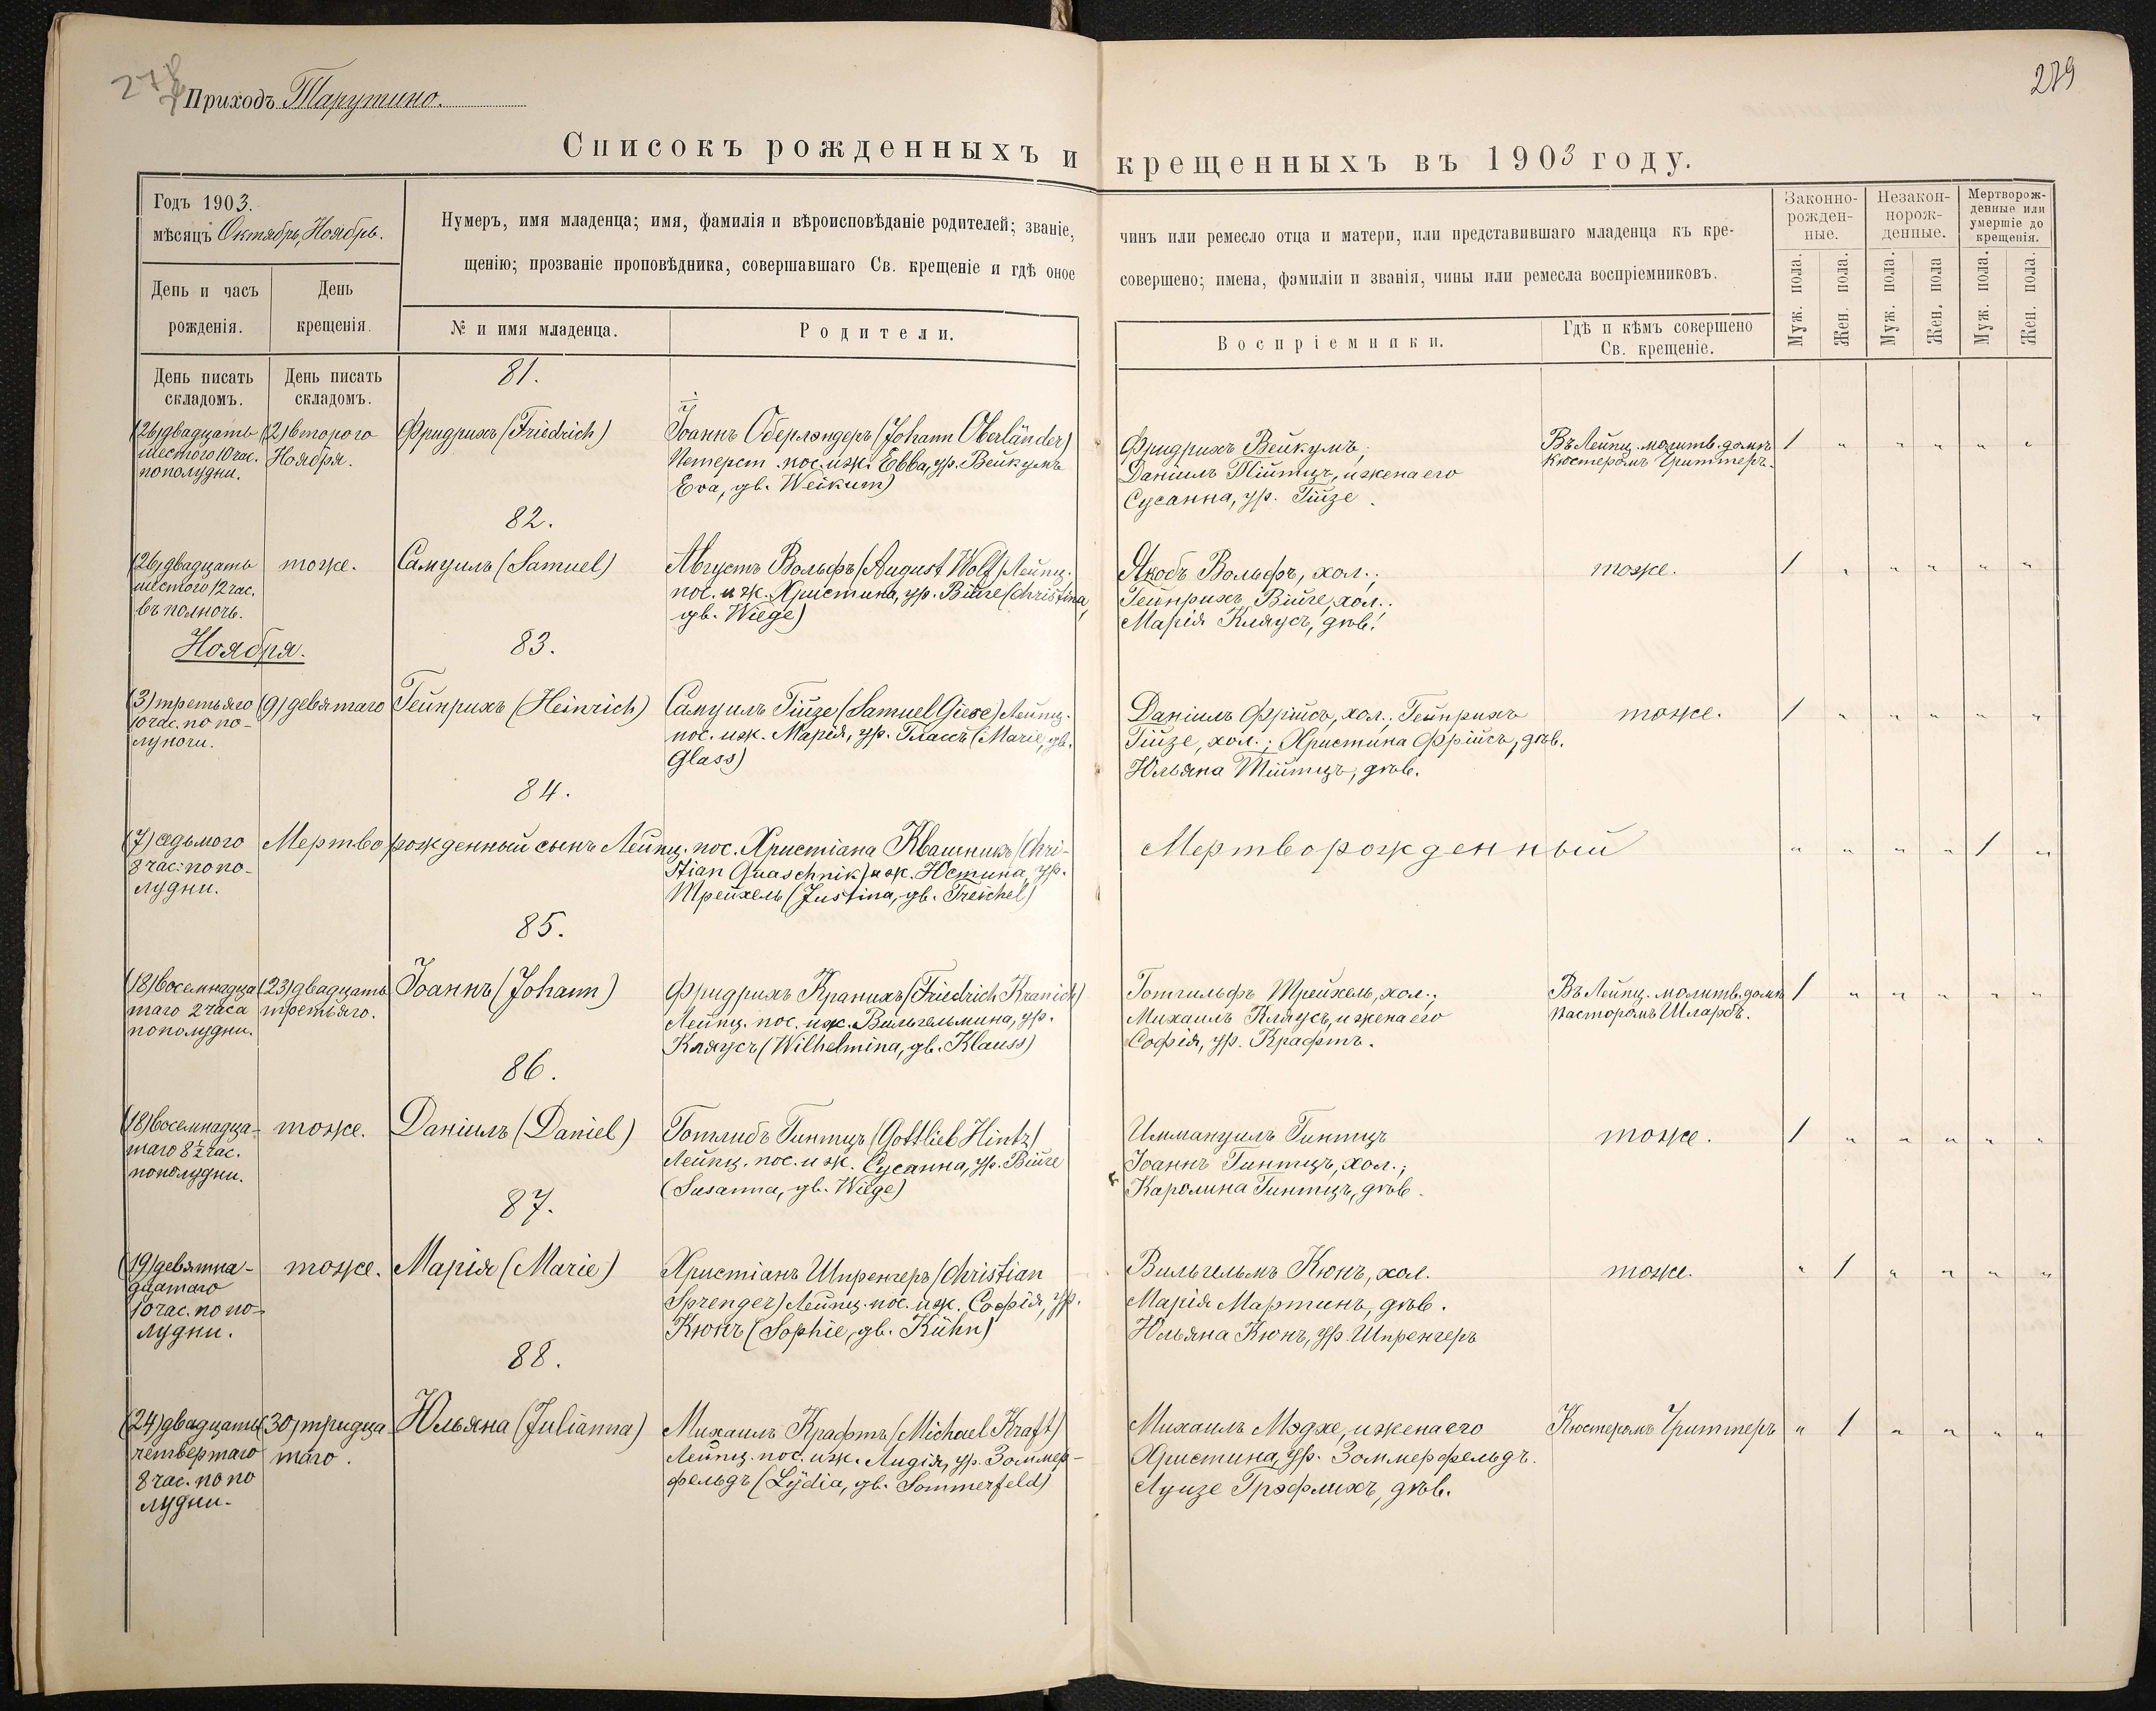 278
Приходъ Тарутино.
279
Списокъ рожденныхъ и крещенныхъ въ 1903 году.
Годъ 1903.
мѣсяцъ Октябрь, Ноябрь.
День и часъ рожденія.
День крещенія.
Нумеръ, имя младенца; имя, фамилія и вѣроисповѣданіе родителей; званіе, чинъ или ремесло отца и матери, или представившаго младенца къ кре-
щенію; прозваніе проповѣдника, совершавшаго Св. крещеніе и гдѣ оное совершено; имена, фамиліи и званія, чины или ремесла воспріемниковъ.
№ и имя младенца.
Родители.
Воспріемники.
Гдѣ и кѣмъ совершено
Св. крещеніе.
Законно-
рожден-
ные.
Незакон-
норож-
денные.
Мертворож-
денные или
умершіе до
крещенія.
Муж. пола.
Жен. пола.
Муж. пола.
Жен. пола
Муж. пола.
Жен. пола.
День писать
складомъ.
День писать
складомъ.
81.
(26) двадцать
шестого 10 час.
пополудни.
(2) второго
Ноября.
Фридрихъ (Friedrich)
Іоаннъ Оберлэндеръ (Johann Oberländer)
Петерст. пос. и ж. Евва, ур. Вейкумъ
Eva, gb. Weikum)
Фридрихъ Вейкумъ,
Даніилъ Тійтцъ, и жена его
Сусанна, ур. Гійзе.
Въ Лейпц. молитв. домѣ
Кюстеромъ Гриттеръ.
1 " " " " "
82.
(26) двадцать
шестого 12 час.
въ полночь.
тоже.
Самуилъ (Samuel)
Августъ Вольфъ (August Wolf) Лейпц.
пос. и ж. Христина, ур. Війге (Christina,
gb. Wiege)
Якобъ Вольфъ, хол.;
Гейнрихъ Війге, хол.;
Марія Клаусъ, дѣв.
тоже.
1 " " " " "
Ноября.
83.
(3) третьяго
10 час. по по-
луночи.
(9) девятаго
Гейнрихъ (Heinrich)
Самуилъ Гійзе (Samuel Giese) Лейпц.
пос. и ж. Марія, ур. Гласъ (Marie, gb.
Glass)
Даніилъ Фрійсъ, хол.; Гейнрихъ
Гійзе, хол.; Христина Фрійсъ, дѣв.
Юльяна Тійтцъ, дѣв.
тоже.
1 " " " " "
84.
(7) седьмого
8 час. по по-
лудни.
Мертворожденный сынъ Лейпц. пос. Христіана Квашникъ (Chri-
stian Quaschnik) и ж. Юстина, ур.
Трейхель (Justina, gb. Treichel)
Мертворожденный
" " " " 1 "
85.
(18) восемнадца
таго 2 часа
пополудни.
(23) двадцать
третьяго.
Іоаннъ (Johann)
Фридрихъ Кранихъ (Friedrich Kranich)
Лейпц. пос. и ж. Вильгельмина, ур.
Клаусъ (Wilhelmina, gb. Klauss)
Готгильфъ Трейхель, хол.;
Михаилъ Клаусъ, и жена его
Софія, ур. Крафтъ.
Въ Лейпц. молитв. домѣ
пасторомъ Шларбъ.
1 " " " " "
86.
(18) восемнадца-
таго 8 1/2 час.
пополудни.
тоже.
Даніилъ (Daniel)
Готлибъ Гинтцъ (Gottlieb Hintz)
Лейпц. пос. и ж. Сусанна, ур. Війге
(Susanna, gb. Wiege)
Иммануилъ Гинтцъ
Іоаннъ Гинтцъ, хол.;
Каролина Гинтцъ, дѣв.
тоже.
1 " " " " "
87.
(19) девятна-
дцатаго
10 час. по по-
лудни.
тоже.
Марія (Marie)
Христіанъ Шпренгеръ (Christian
Sprenger) Лейпц. пос. и ж. Софія, ур.
Кюнъ (Sophie, gb. Kühn)
Вильгельмъ Кюнъ, хол.
Марія Мартинъ, дѣв.
Юльяна Кюнъ, ур. Шпренгеръ
тоже.
" 1 " " " "
88.
(24) двадцать
четвертаго
8 час. по по
лудни.
(30) тридца-
таго.
Юльяна (Julianna)
Михаилъ Крафтъ (Michael Kraft)
Лейпц. пос. и ж. Лидія, ур. Зоммер-
фельдъ (Lydia, gb. Sommerfeld)
Михаилъ Мэдхе, и жена его
Христина, ур. Зоммерфельдъ.
Луизе Грэфлихъ, дѣв.
Кюстеромъ Гриттеръ
" 1 " " " "